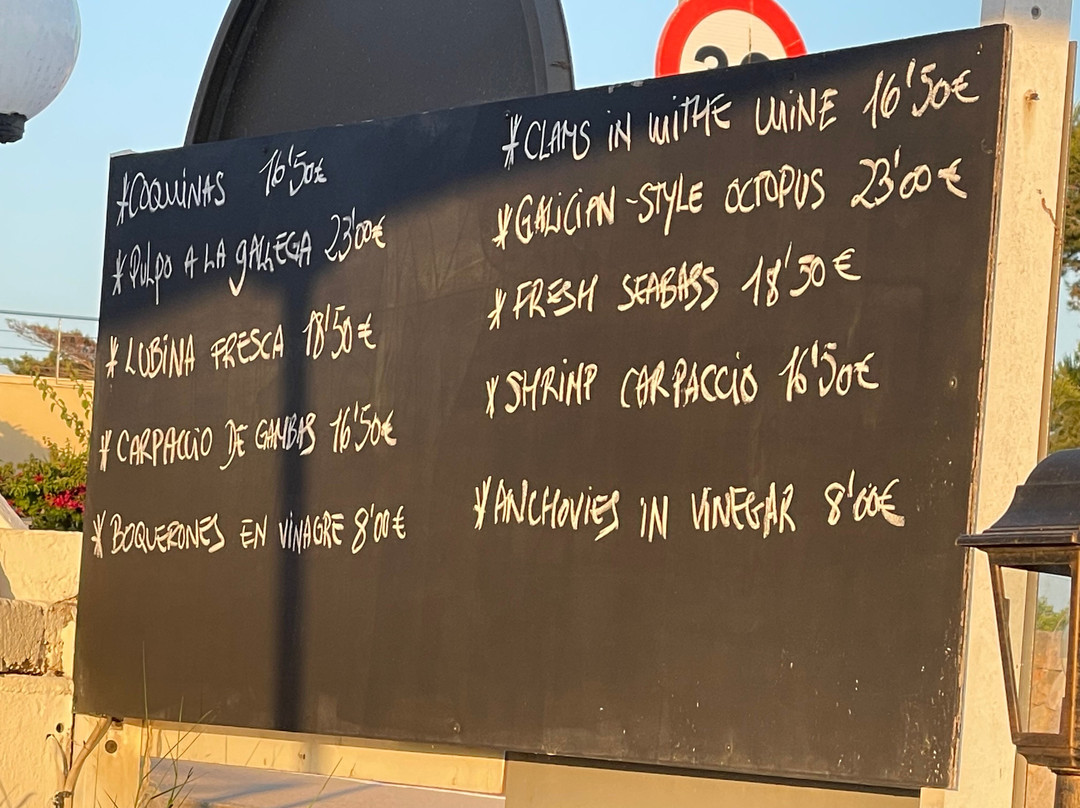 *COQUINAS 16'50€
*PULPO A LA GALLEGA 23'00€
*LUBINA FRESCA 18'50€
*CARPACCIO DE GAMBAS 16'50€
*BOQUERONES EN VINAGRE 8'00€
*CLAMS IN WITHE WINE 16'50€
*GALICIAN-STYLE OCTOPUS 23'00€
*FRESH SEABASS 18'50€
*SHRIMP CARPACCIO 16'50€
*ANCHOVIES IN VINEGAR 8'00€